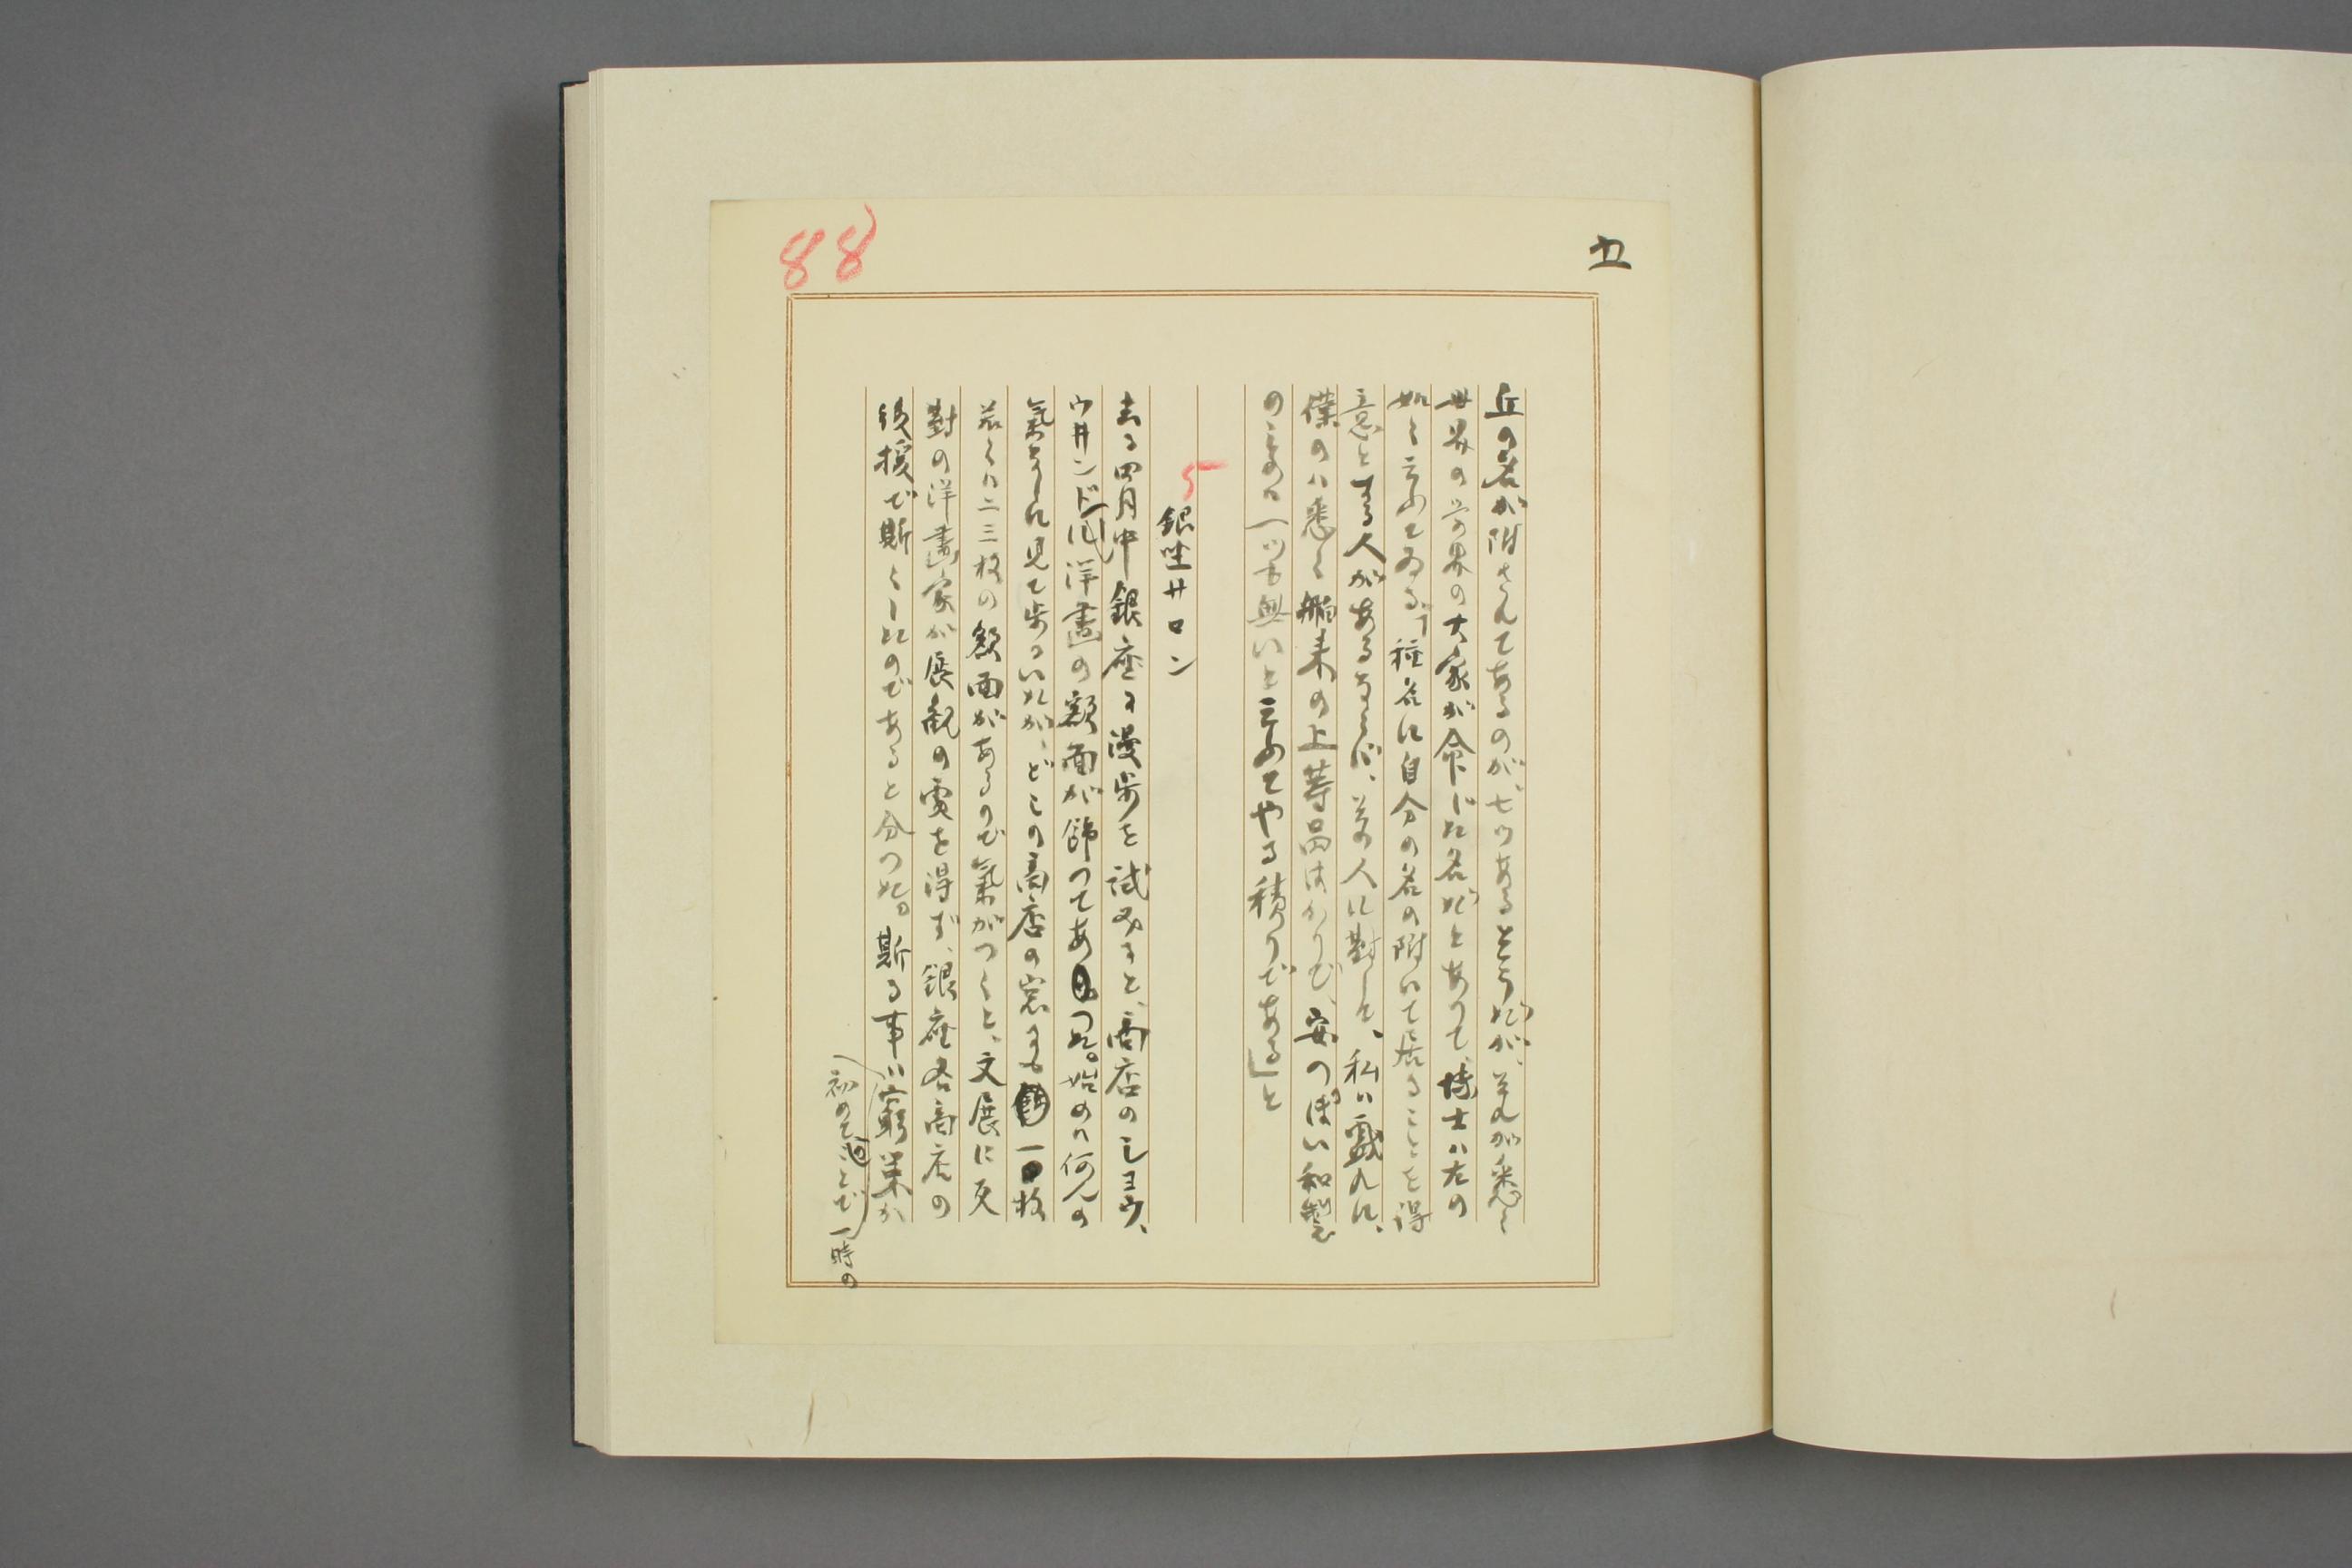 五
88
丘の名が附さんてあるのが、七ツあるとうだが、それが悉く
世界の学界の大家が命じた名だとあつて、博士ハ左の
如く云ふてゐる、「種名に自分の名の附いて居ることを得
意とする人があるならバ、其の人に對して、私ハ戯れに、
僕のハ悉く舶来の上等品ばかりで、安つぽい和製
のものハ一つも無いと云ふてやる積りである」と
5
銀坐サロン
去る四月中銀座に漫歩を試みると、商店のシヨウ、
ウ井ンドに洋畫の額面が飾つてあつた。始めハ何んの
氣なしに見て歩るいたが、どこの商店の窓にも一枚
若くハ二三枚の額面があるので氣がつくと、文展に反
對の洋畫家が展観の場所を得ず、銀座各商店の
後援で斯くしたのであると分つた。斯る事ハ窮策か
初めてのことで一時の